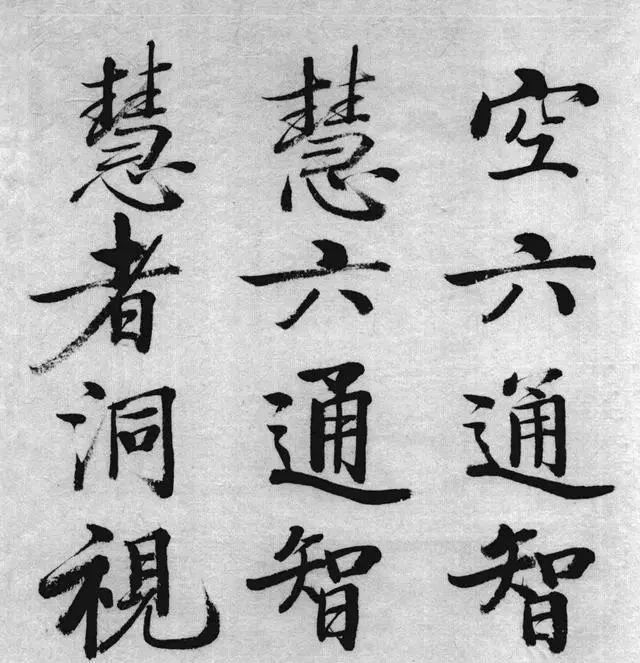 空六通智
慧六通智
慧者洞視